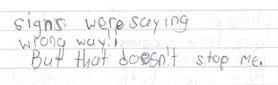 signs were saying
wrong way!
But that doesn't stop me.